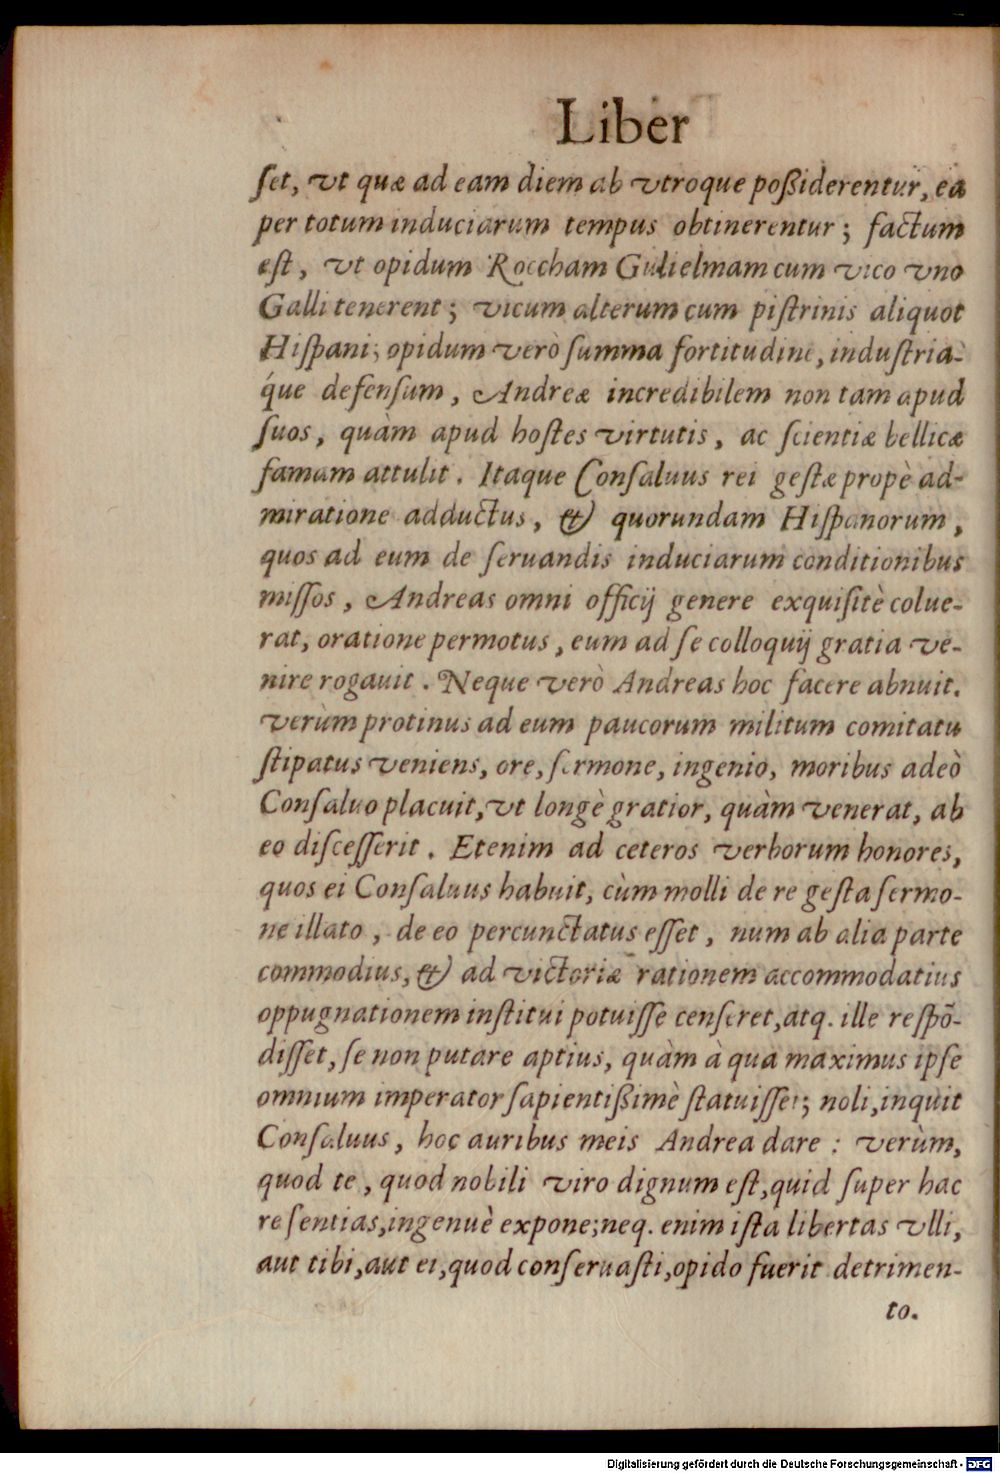 Liber
ſet, vt quæ ad eam diem ab vtroque poßiderentur, ea
per totum induciarum tempus obtinerentur; factum
eſt, vt opidum Roccham Gulielmam cum vico vno
Galli tenerent; vicum alterum cum piſtrinis aliquot
Hiſpani; opidum verò ſumma fortitudine, induſtria-
q́ue defenſum, Andreæ incredibilem non tam apud
ſuos, quàm apud hoſtes virtutis, ac ſcientiæ bellicæ
famam attulit. Itaque Conſaluus rei geſtæ propè ad-
miratione adductus, & quorundam Hiſpanorum,
quos ad eum de ſeruandis induciarum conditionibus
miſſos, Andreas omni officij genere exquiſitè colue-
rat, oratione permotus, eum ad ſe colloquij gratia ve-
nire rogauit. Neque verò Andreas hoc facere abnuit.
verùm protinus ad eum paucorum militum comitatu
ſtipatus veniens, ore, ſermone, ingenio, moribus adeò
Conſaluo placuit, vt longè gratior, quàm venerat, ab
eo diſceſſerit. Etenim ad ceteros verborum honores,
quos ei Conſaluus habuit, cùm molli de re geſta ſermo-
ne illato, de eo percunctatus eſſet, num ab alia parte
commodius, & ad victoriæ rationem accommodatius
oppugnationem inſtitui potuiſſe cenſeret, atq. ille reſpõ-
diſſet, ſe non putare aptius, quàm à qua maximus ipſe
omnium imperator ſapientißimè ſtatuiſſet; noli, inquit
Conſaluus, hoc auribus meis Andrea dare: verùm,
quod te, quod nobili viro dignum eſt, quid ſuper hac
re ſentias, ingenuè expone; neq. enim iſta libertas vlli,
aut tibi, aut ei, quod conſeruaſti, opido fuerit detrimen-
to.
Digitalisierung gefördert durch die Deutsche Forschungsgemeinschaft - DFG